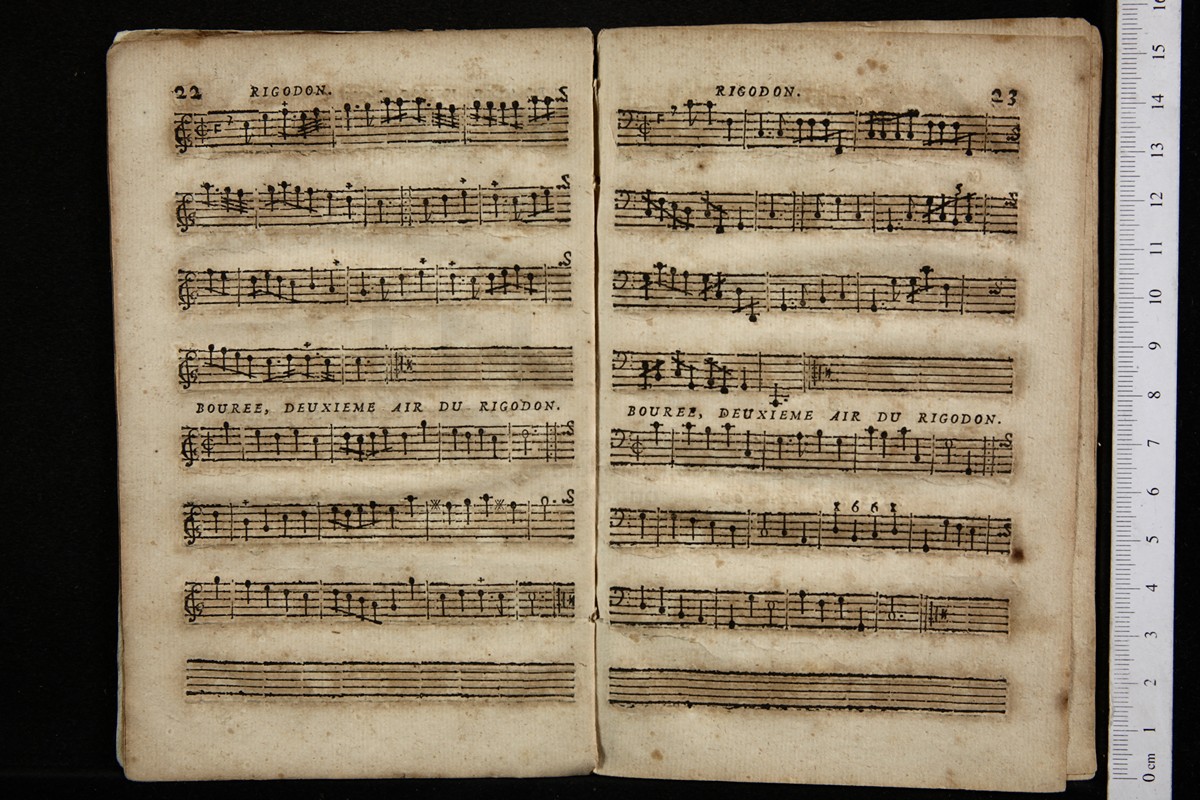 22 RIGODON.
BOUREE, DEUXIEME AIR DU RIGODON.
RIGODON. 23
BOUREE, DEUXIEME AIR DU RIGODON.
6 6
16
15
14
13
12
11
10
9
8
7
6
5
4
3
2
1
0 cm